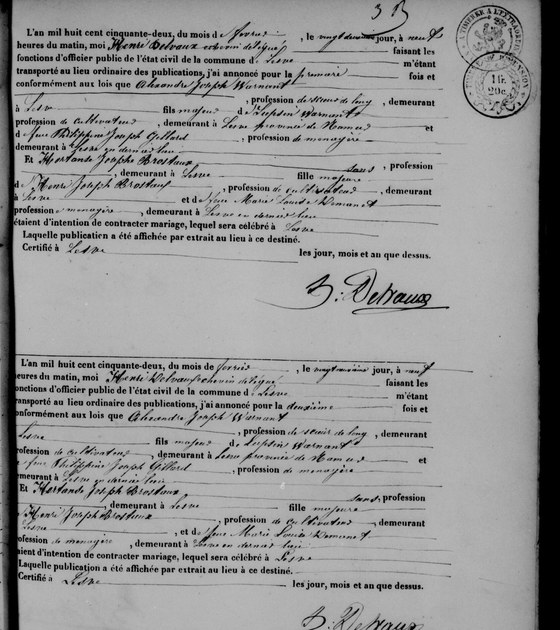 L'an mil huit cent cinquante-deux, du mois de fevrier, le vingt deuxieme jour, à neuf
heures du matin, moi Henri Delvaux echevin délégué faisant les
fonctions d'officier public de l'état civil de la commune de Lesve m'étant
transporté au lieu ordinaire des publications, j'ai annoncé pour la premiere fois et
conformément aux lois que Alexandre Joseph Warnant
, profession de scieur de long, demeurant
à Lesve fils majeur d Lupsin Warnant
profession de cultivateur, demeurant à Lesve province de Namur et
d feue Philippine Joseph Gillard, profession de menagère
demeurant à Lesve en dernier lieu
Et Hortande Josephe Brostaux sans, profession
, demeurant à Lesve fille majeure
d Henri Joseph Brostaux, profession de cultivateur, demeurant
à Lesve et de feue Marie Louise
profession menagère, demeurant à Lesve en dernier lieu
étaient d'intention de contracter mariage, lequel sera célébré à Lesve
Laquelle publication a été affichée par extrait au lieu à ce destiné.
Certifié à Lesve les jour, mois et an que dessus.
H. Delvaux
L'an mil huit cent cinquante-deux, du mois de fevrier, le vingt jour, à neuf
heures du matin, moi Henri Delvaux echevin délégué faisant les
onctions d'officier public de l'état civil de la commune d Lesve m'étant
ansporté au lieu ordinaire des publications, j'ai annoncé pour la deuxième fois et
onformément aux lois que Alexandre Joseph Warnant
, profession de scieur de long, demeurant
Lesve fils majeur d Lupsin Warnant
rofession de cultivateur, demeurant à Lesve province de Namur et
e feue Philippine Joseph Gillard, profession de menagère
emeurant à Lesve en dernier lieu
Et Hortande Joseph Brostaux sans, profession
, demeurant à Lesve fille majeure
Henri Joseph Brostaux, profession de cultivateur, demeurant
Lesve, et de feue Marie Louise
ofession de menagère, demeurant à Lesve en dernier lieu
aient d'intention de contracter mariage, lequel sera célébré à Lesve
Laquelle publication a été affichée par extrait au lieu à ce destiné.
Certifié à Lesve les jour, mois et an que dessus.
H. Delvaux